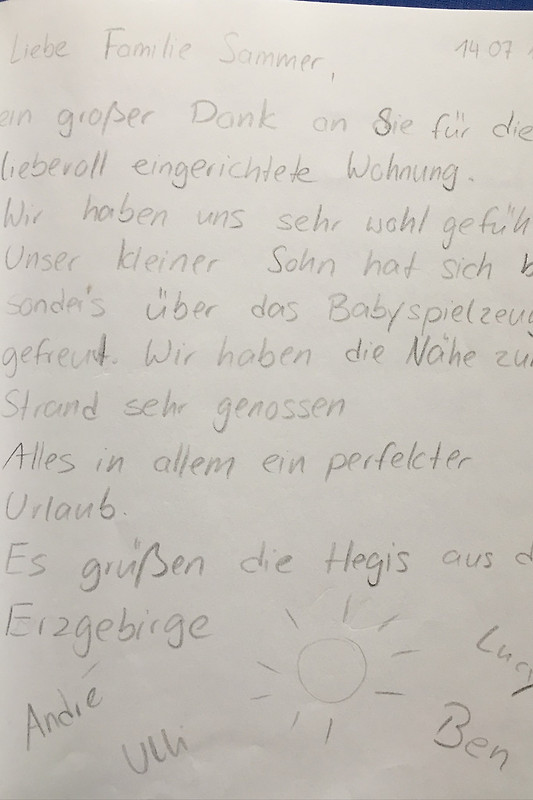 Liebe Familie Sammer,
14.07
ein großer Dank an Sie für die
liebevoll eingerichtete Wohnung.
Wir haben uns sehr wohl gefüh
Unser kleiner Sohn hat sich b
sonders über das Babyspielzeug
gefreut. Wir haben die Nähe zu
Strand sehr genossen
Alles in allem ein perfekter
Urlaub.
Es grüßen die Hegis aus d
Erzgebirge
Lucy
André
Ulli
Ben